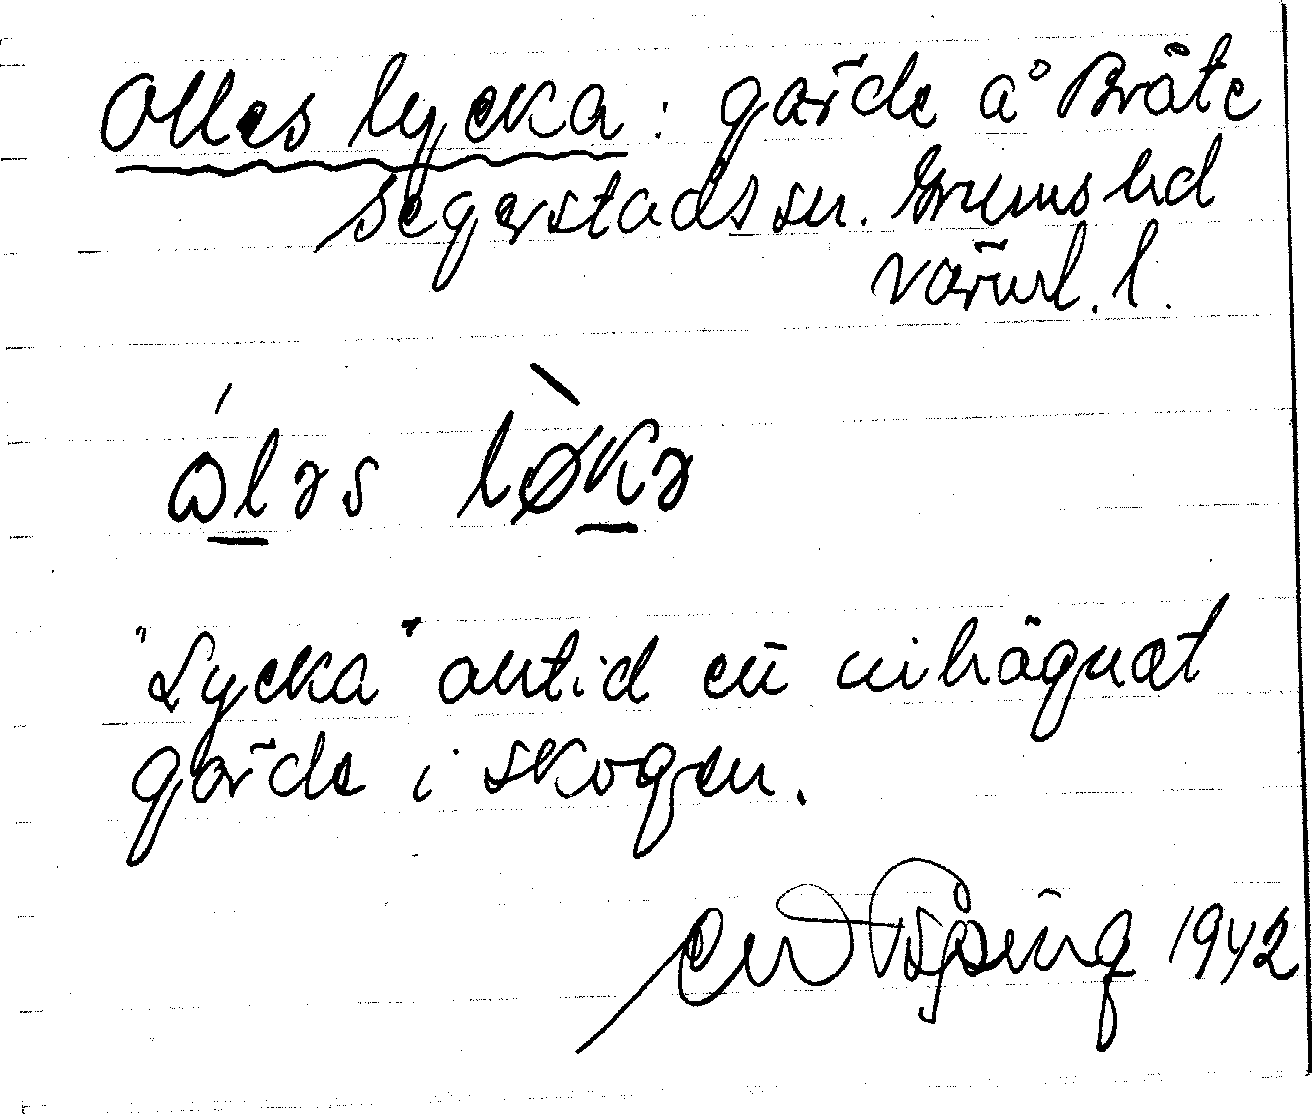 Olles lycka: gärde å Bräte
Segerstads sn. Grums hd
Värml. l.
ó̀ləs lø̀kə
"Lycka" alltid ett inhägnat
gärde i skogen.
1942